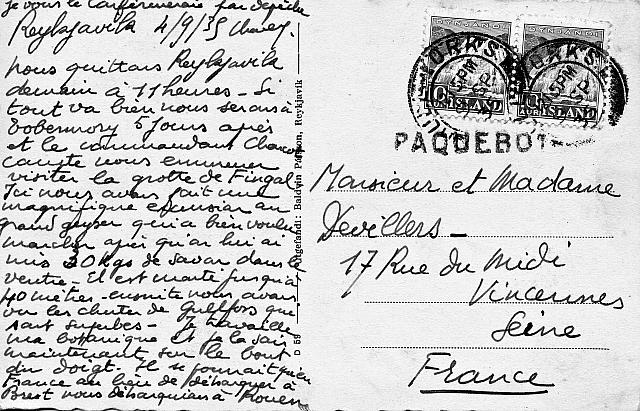 je vous le confirmerais par dépêche
Reykjavik 4/9/35
nous quittons Reykjavik
demain à 11 heures - Si
tout va bien nous serons à
Tobermory 5 jours après
et le commandant Charcot
compte nous emmener
visiter la grotte de Fingal
Ici nous avons fait une
magnifique excursion au
grand geyser qui a bien voulu
marcher après qu'on lui ai
mis 30 kgs de savon dans le
ventre - Il est monté jusqu'à
40 mètres - ensuite nous avons
vu les chutes de Gullfoss qui
sont superbes - Je travaille
ma botanique et je la sais
maintenant sur le bout
du doigt. Il se pourrait qu'en
France au lieu de débarquer à
Brest nous débarquions à Rouen
Utgefandi: Baldvin Pálsson, Reykjavik
D 59
DYNJANDI DYNJANDI
ÍSLAND ÍSLAND
PAQUEBOT
Monsieur et Madame
Devillers -
17 Rue du Midi
Vincennes
Seine
France